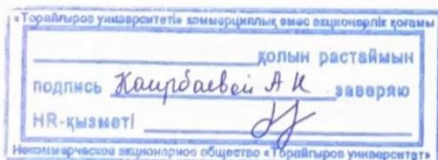 «Торайғыров университеті» коммерциялық емес акционерлік қоғамы
қолын растаймын
подпись Каирбаевой А К заверяю
HR-қызметі
Некоммерческое акционерное общество «Торайғыров университет»